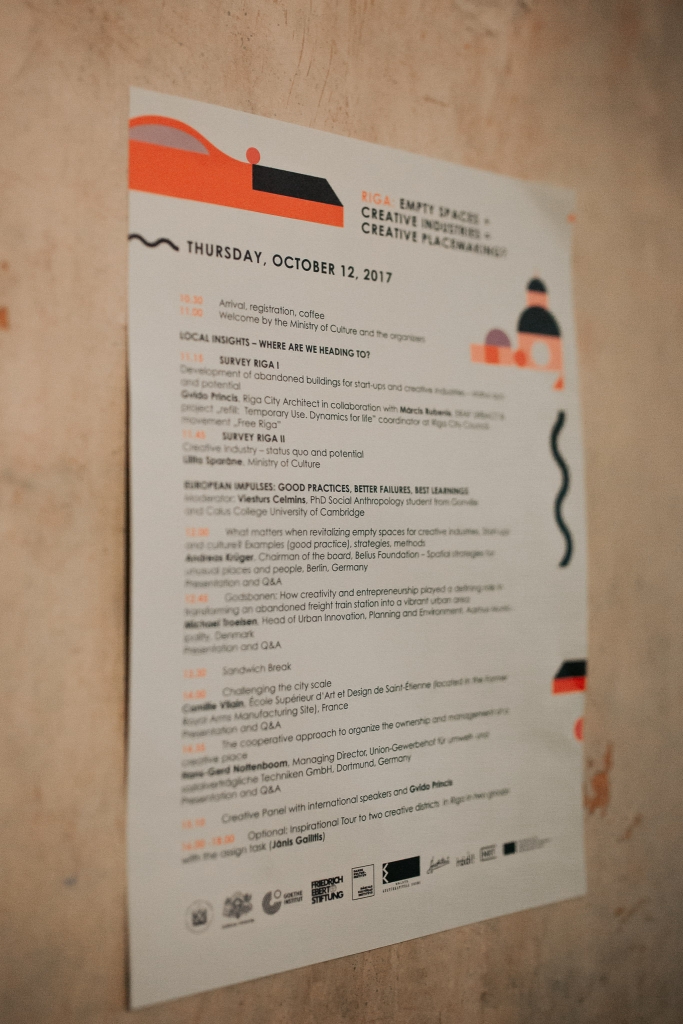 RIGA: EMPTY SPACES +
CREATIVE INDUSTRIES =
CREATIVE PLACEMAKING?
THURSDAY, OCTOBER 12, 2017
10.30 Arrival, registration, coffee
11.00 Welcome by the Ministry of Culture and the organisers
LOCAL INSIGHTS – WHERE ARE WE HEADING TO?
11.15 SURVEY RIGA I
Development of abandoned buildings for start-ups and creative industries –
and potential
Gvido Princis, Riga City Architect in collaboration with Mārcis Rubenis,
project „refill: Temporary Use. Dynamics for life" coordinator at Riga City Council,
movement „Free Riga"
11.45 SURVEY RIGA II
Creative Industry – status quo and potential
Sparāne, Ministry of Culture
EUROPEAN IMPULSES: GOOD PRACTICES, BETTER FAILURES, BEST LEARNINGS
Moderator: Viesturs Celmins, PhD Social Anthropology student from Gonville
and Caius College University of Cambridge
12.00 What matters when revitalizing empty spaces for creative industries,
and culture? Examples (good practice), strategies, methods
Andreas Krüger, Chairman of the board, Belius Foundation – Spatial strategies for
unusual places and people, Berlin, Germany
Presentation and Q&A
12.45 Godsbanen: How creativity and entrepreneurship played a defining role in
transforming an abandoned freight train station into a vibrant urban area
Michael Troelsen, Head of Urban Innovation, Planning and Environment, Aarhus
pality, Denmark
Presentation and Q&A
13.30 Sandwich Break
14.00 Challenging the city scale
Camille Vilain, École Supérieur d'Art et Design de Saint-Étienne (located in the former
Royal Arms Manufacturing Site), France
Presentation and Q&A
14.35 The cooperative approach to organize the ownership and management
creative place
Hans-Gerd Nottenboom, Managing Director, Union-Gewerbehof für umwelt- und
sozialverträgliche Techniken GmbH, Dortmund, Germany
Presentation and Q&A
15.10 Creative Panel with international speakers and Gvido Princis
16.00 -18.00 Optional: Inspirational Tour to two creative districts in Riga in two groups
with the assign task (Jānis Gailītis)
GOETHE
INSTITUT
FRIEDRICH
EBERT
STIFTUNG